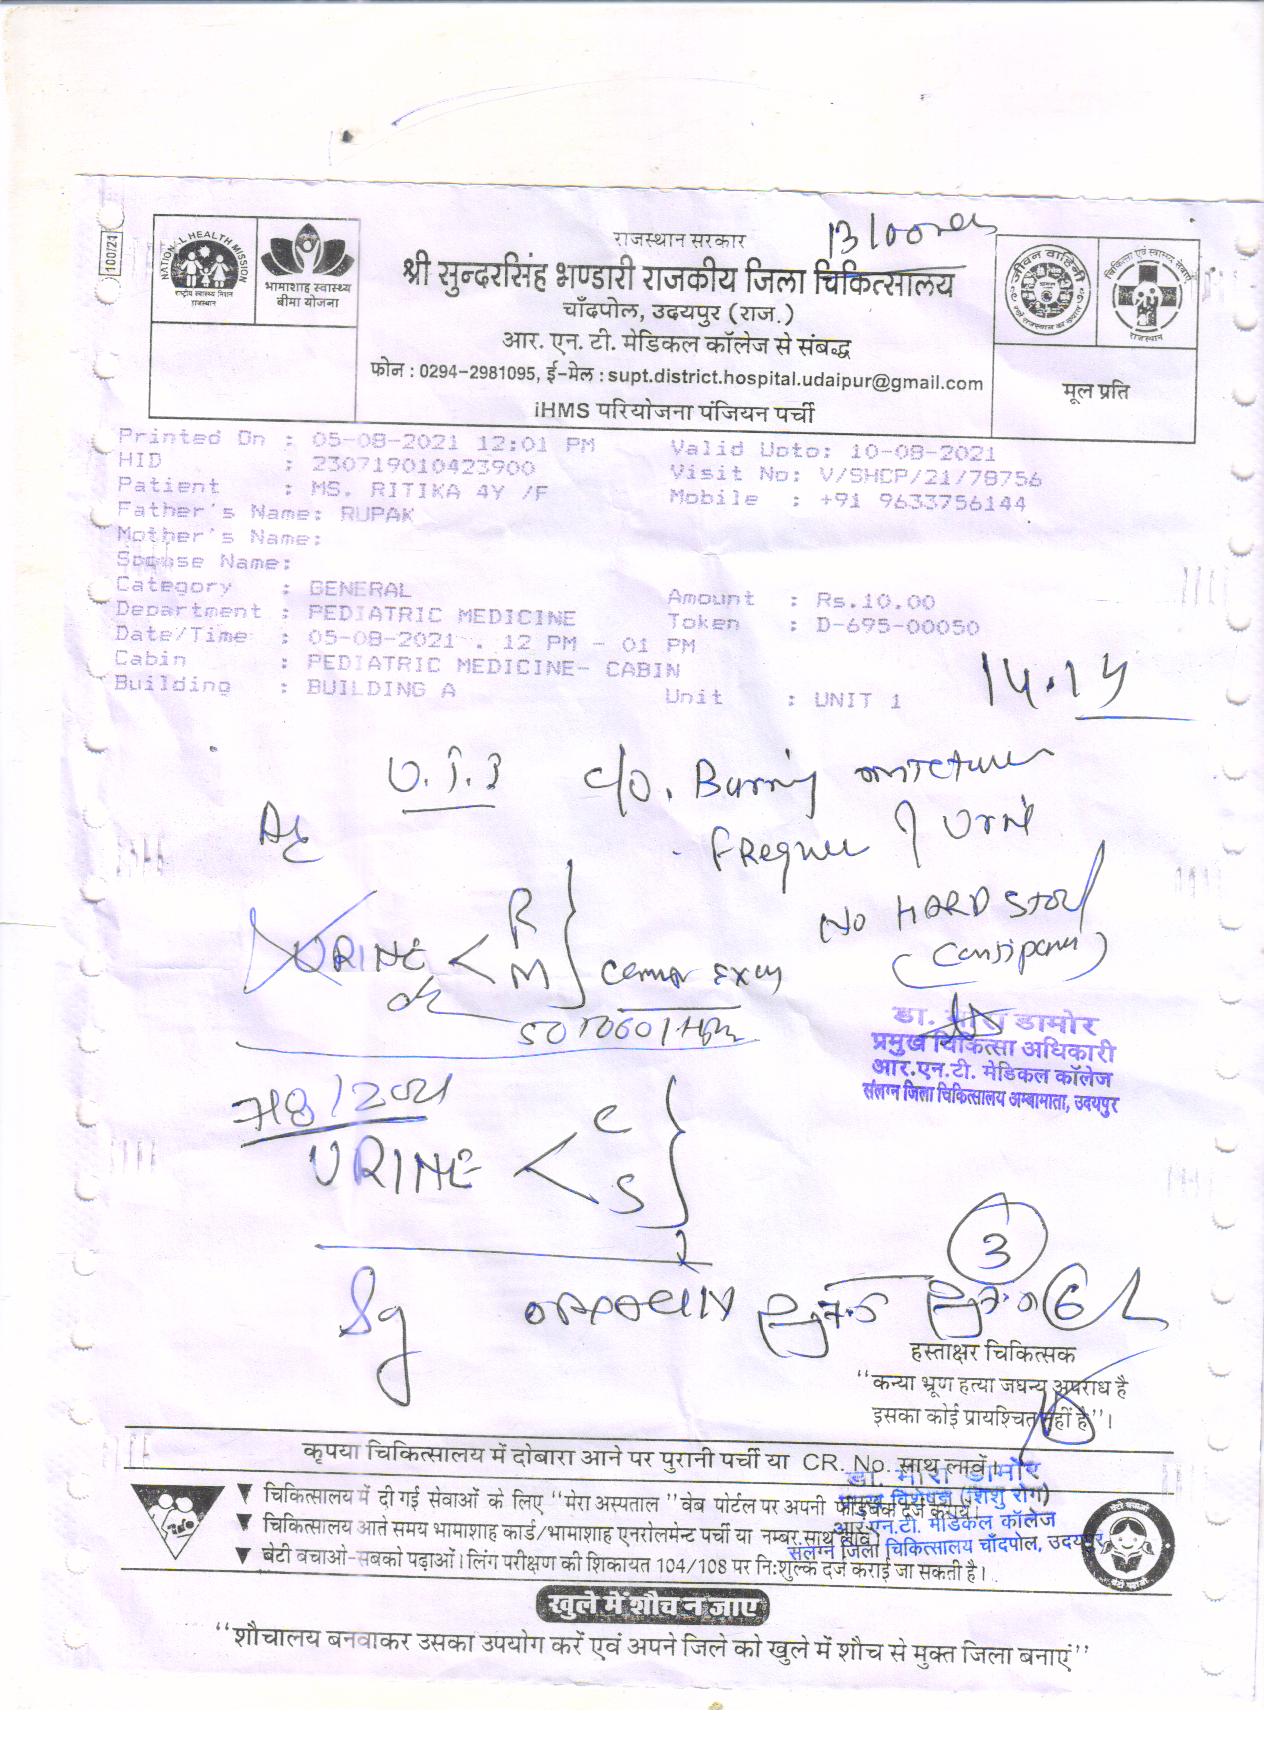 100/21
NATIONAL HEALTH MISSION
राष्ट्रीय स्वास्थ्य मिशन
राजस्थान
भामाशाह स्वास्थ्य
बीमा योजना
राजस्थान सरकार
श्री सुन्दरसिंह भण्डारी राजकीय जिला चिकित्सालय
चाँदपोल, उदयपुर (राज.)
आर. एन. टी. मेडिकल कॉलेज से संबद्ध
फोन : 0294-2981095, ई-मेल : supt.district.hospital.udaipur@gmail.com
iHMS परियोजना पंजियन पर्ची
राजस्थान
मूल प्रति
Printed On : 05-08-2021 12:01 PM Valid Upto: 10-08-2021
HID : 230719010423900 Visit No: V/SHCP/21/78756
Patient : MS. RITIKA 4Y /F Mobile : +91 9633756144
Father's Name: RUPAK
Mother's Name:
Spouse Name:
Category : GENERAL Amount : Rs.10.00
Department : PEDIATRIC MEDICINE Token : D-695-00050
Date/Time : 05-08-2021 . 12 PM - 01 PM
Cabin : PEDIATRIC MEDICINE- CABIN
Building : BUILDING A Unit : UNIT 1
c/o. Burning
URINE < R M }
NO HARD STOOL
डा. मीरा डामोर
प्रमुख चिकित्सा अधिकारी
आर.एन.टी. मेडिकल कॉलेज
संलग्न जिला चिकित्सालय अम्बामाता, उदयपुर
7/8/2021
URINE < C S }
3
हस्ताक्षर चिकित्सक
"कन्या भ्रूण हत्या जघन्य अपराध है
इसका कोई प्रायश्चित नहीं है"।
कृपया चिकित्सालय में दोबारा आने पर पुरानी पर्ची या CR. No. साथ लावें।
▼ चिकित्सालय में दी गई सेवाओं के लिए "मेरा अस्पताल" वेब पोर्टल पर अपनी फीडबैक दर्ज करावें।
▼ चिकित्सालय आते समय भामाशाह कार्ड/भामाशाह एनरोलमेन्ट पर्ची या नम्बर साथ लावें।
▼ बेटी बचाओ-सबको पढ़ाओं। लिंग परीक्षण की शिकायत 104/108 पर नि:शुल्क दर्ज कराई जा सकती है।
डा. मीरा डामोर
प्रमुख विशेषज्ञ (शिशु रोग)
आर.एन.टी. मेडिकल कॉलेज
संलग्न जिला चिकित्सालय चाँदपोल, उदयपुर
खुले में शौच न जाए
"शौचालय बनवाकर उसका उपयोग करें एवं अपने जिले को खुले में शौच से मुक्त जिला बनाएं"